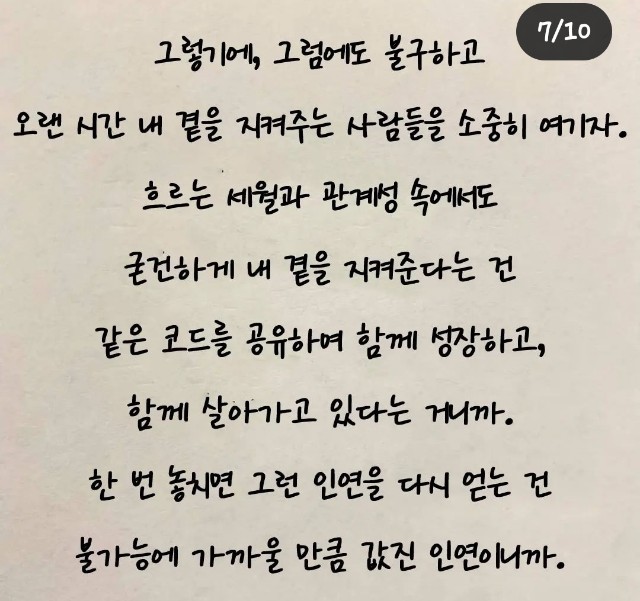 7/10
그렇기에, 그럼에도 불구하고
오랜 시간 내 곁을 지켜주는 사람들을 소중히 여기자.
흐르는 세월과 관계성 속에서도
굳건하게 내 곁을 지켜준다는 건
같은 코드를 공유하여 함께 성장하고,
함께 살아가고 있다는 거니까.
한 번 놓치면 그런 인연을 다시 얻는 건
불가능에 가까울 만큼 값진 인연이니까.